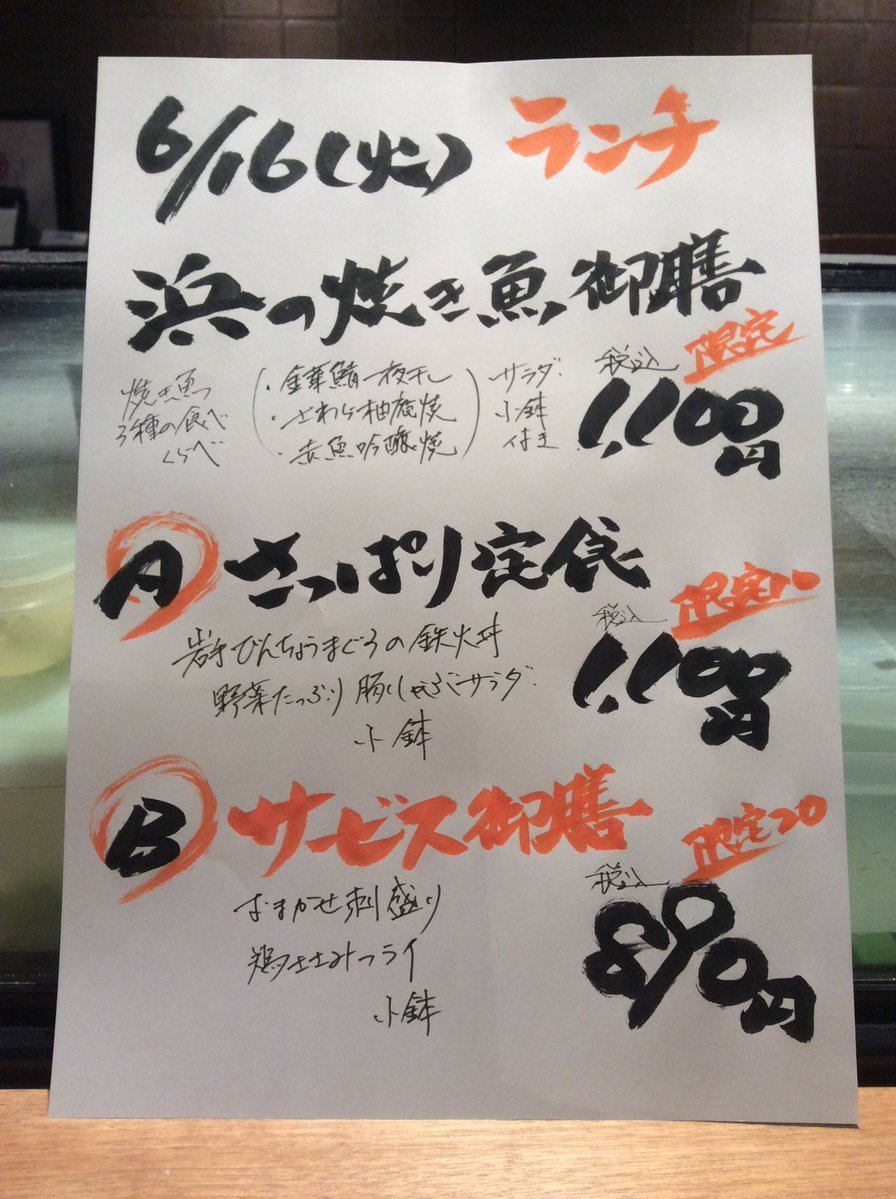 6/16(火) ランチ
浜の焼き魚御膳
焼き魚
3種の食べ
くらべ
・金華鯖一夜干し
・さわら柚庵焼
・赤魚吟醸焼
サラダ
小鉢
付き
限定
税込
1,100円
A さっぱり定食
岩手びんちょうまぐろの鉄火丼
野菜たっぷり豚しゃぶサラダ
小鉢
限定10
税込
1,100円
B サービス御膳
おまかせ刺盛り
鶏ささみフライ
小鉢
限定20
税込
890円